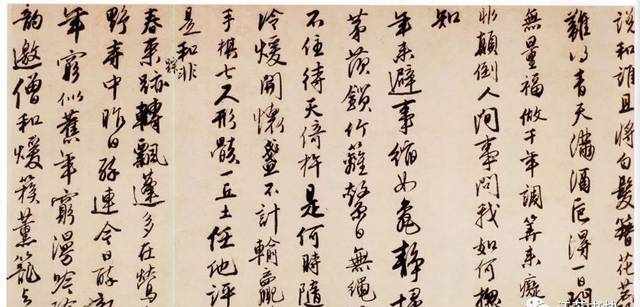 說和詐且將白髮簪花
難以青天滿酒卮得一日
無量福做千年調笑來癡
眼顛倒人間事問我如何
知
年來避事縮如龜靜掃
茅茨鎖竹籬繫日無繩
不住待天倚杵是何時隨
冷煖開懷盞不計輸贏
手棋七尺形骸一丘土任他評
是和非
春來蹤跡轉飄蓬多在鶯
野寺中昨日醉連今日醉
年窮似舊年窮漫吟
韵邀僧和煖簇薰籠